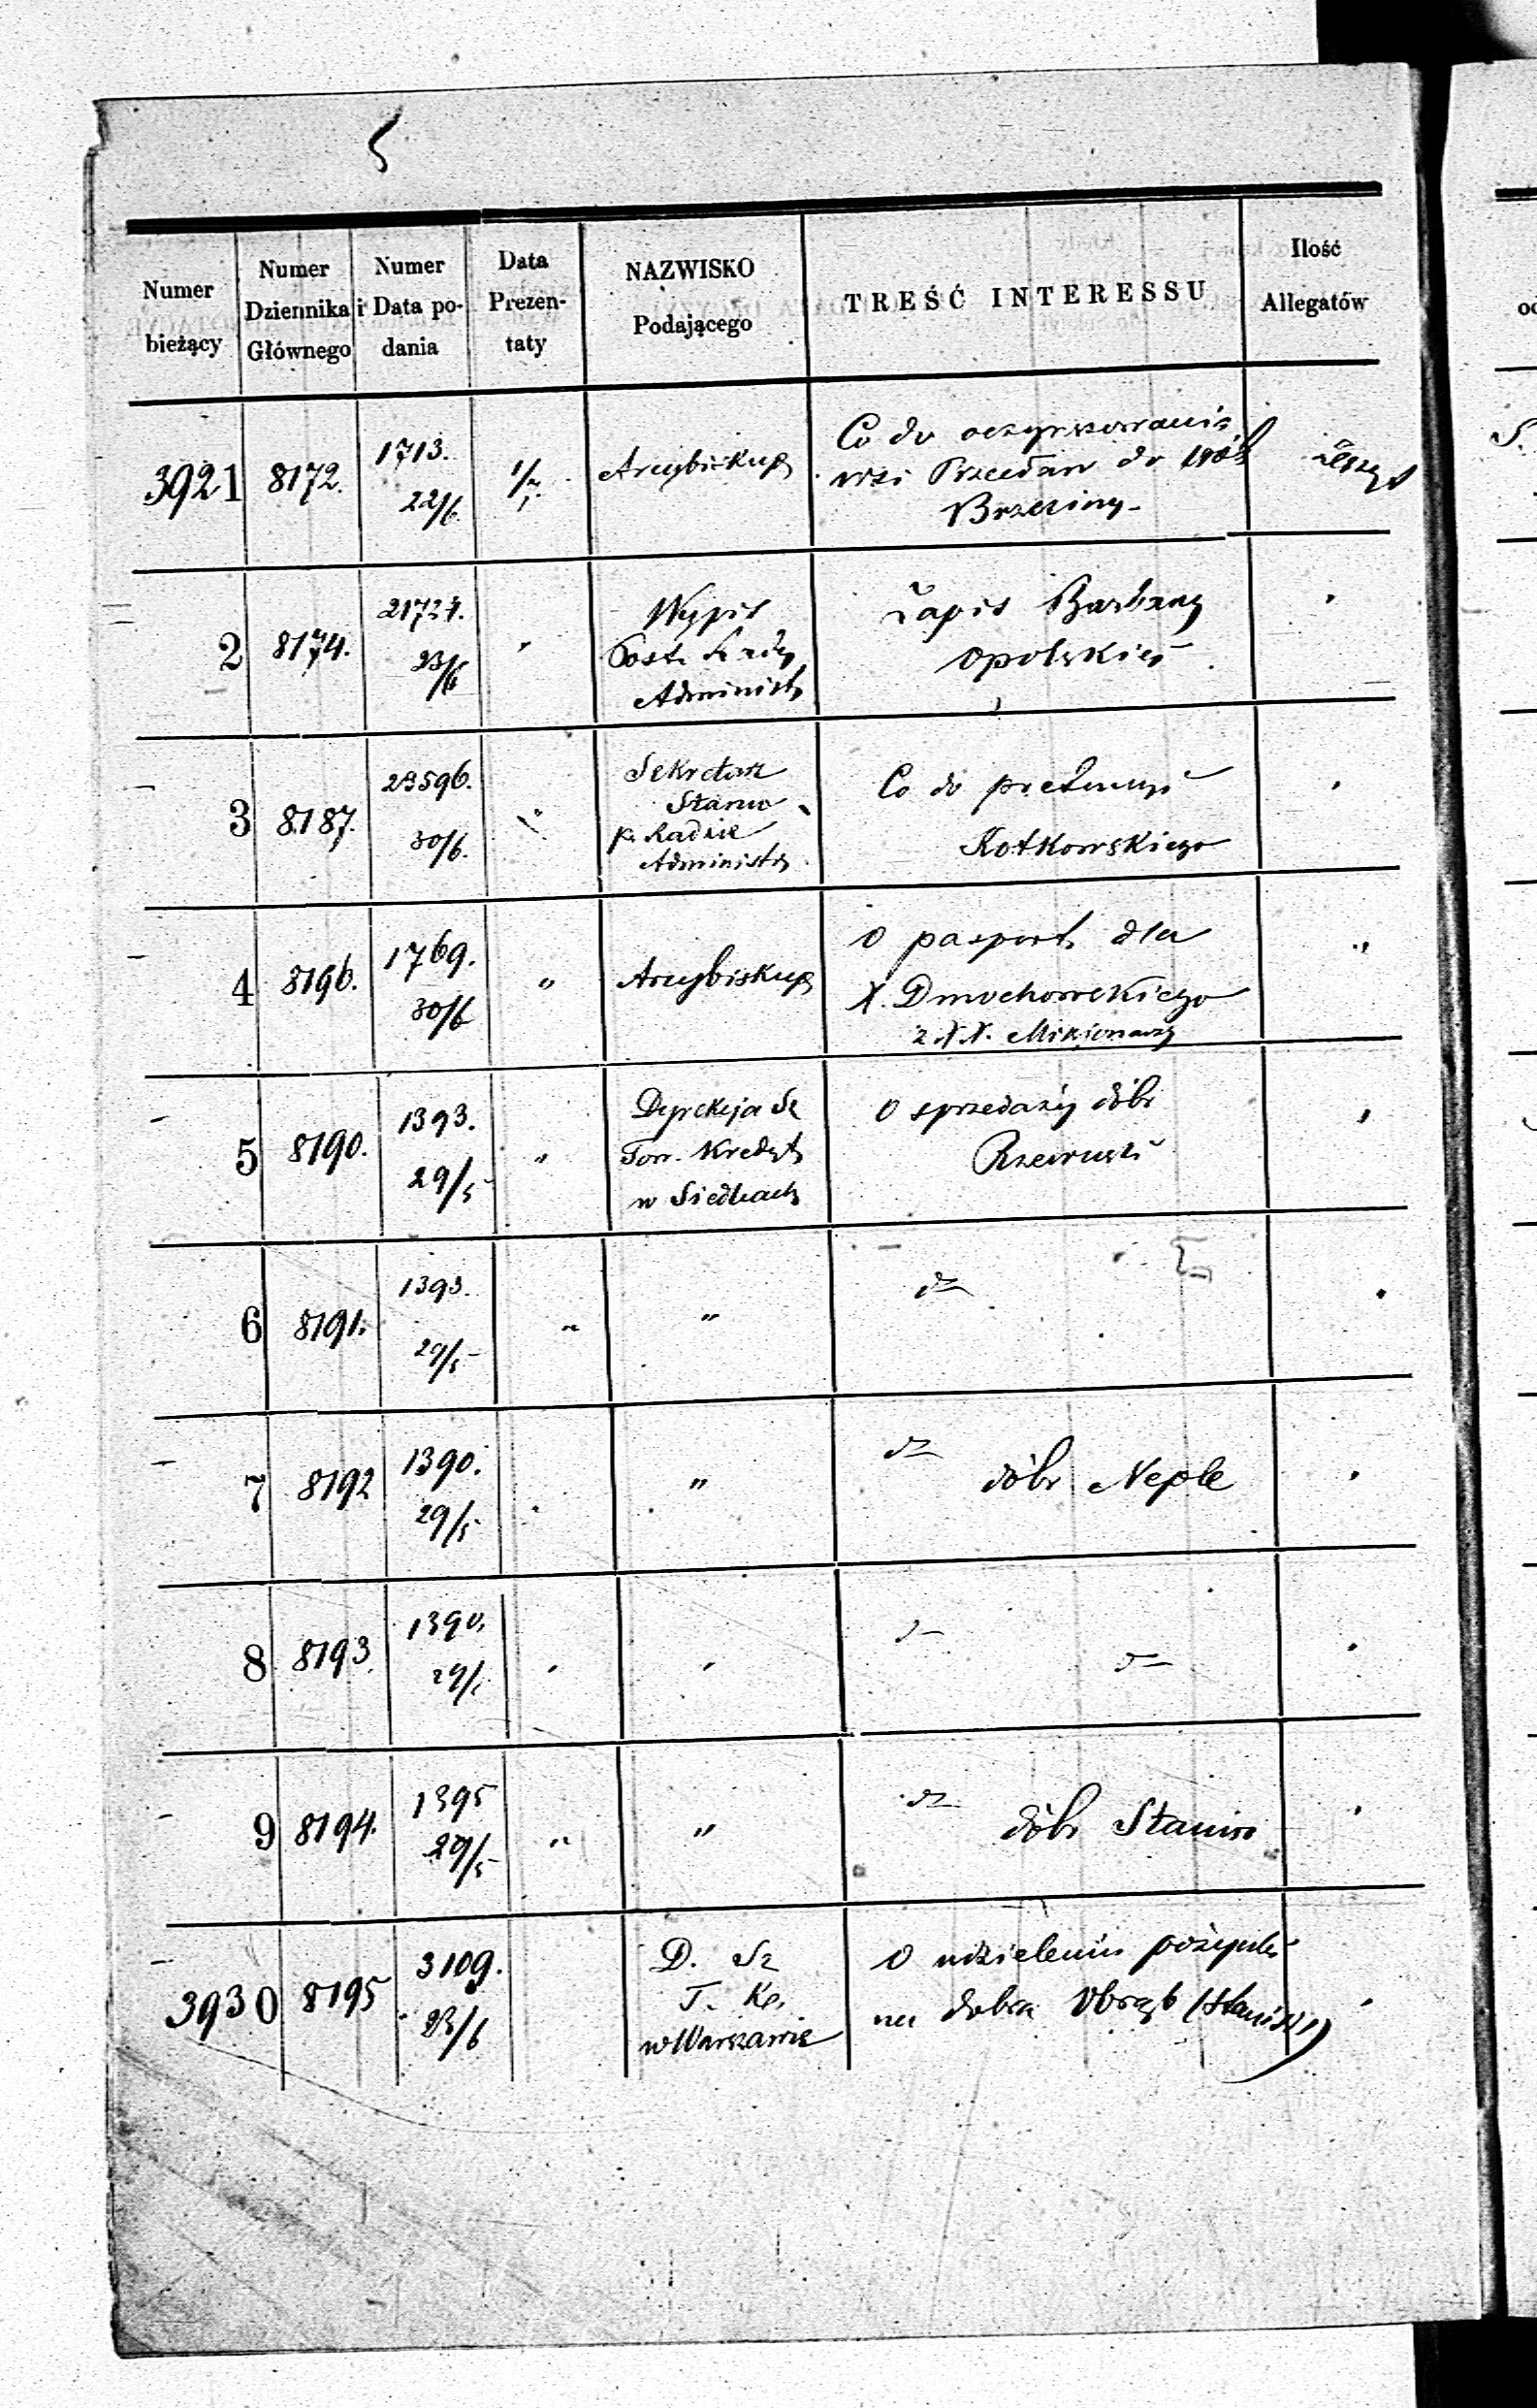 Numer bieżący
Numer Dziennika Głównego
Numer i Data podania
Data Prezentaty
NAZWISKO Podającego
TREŚĆ INTERESSU
Ilość Allegatów
3921 8172. 1713. 22/6. 1/7. Arcybiskup Co do oczynszowania
wsi Przecław do
Brzeziny
2 8174. 21724. 23/6 " Wypis Zapis Barbary
Post. Rady Opolskiéj
Administr
3 8187. 23596. 30/6. " Sekretarz Co do
Stanu Kotkowskiego
p. Radzie
Administr
4 8196. 1769. 30/6 " Arcybiskup O pasport dla "
X. Dmochowskiego
z XX. Misionarzy
5 8190. 1393. 29/5 " Dyrekcja Sz O sprzedaży dóbr "
Tow. Kredyt
w Siedlcach
6 8191. 1393. 29/5 " " dº
7 8192 1390. 29/5 " " dº
dóbr Neple
8 8193. 1390. 29/5 " " dº dº
9 8194. 1395 29/5 " " dº
dóbr Stanin
3930 8195 3109. 23/6 D. Sz O udzieleniu pożyczki
T. Kr. na dobra Obrąb
w Warszawie